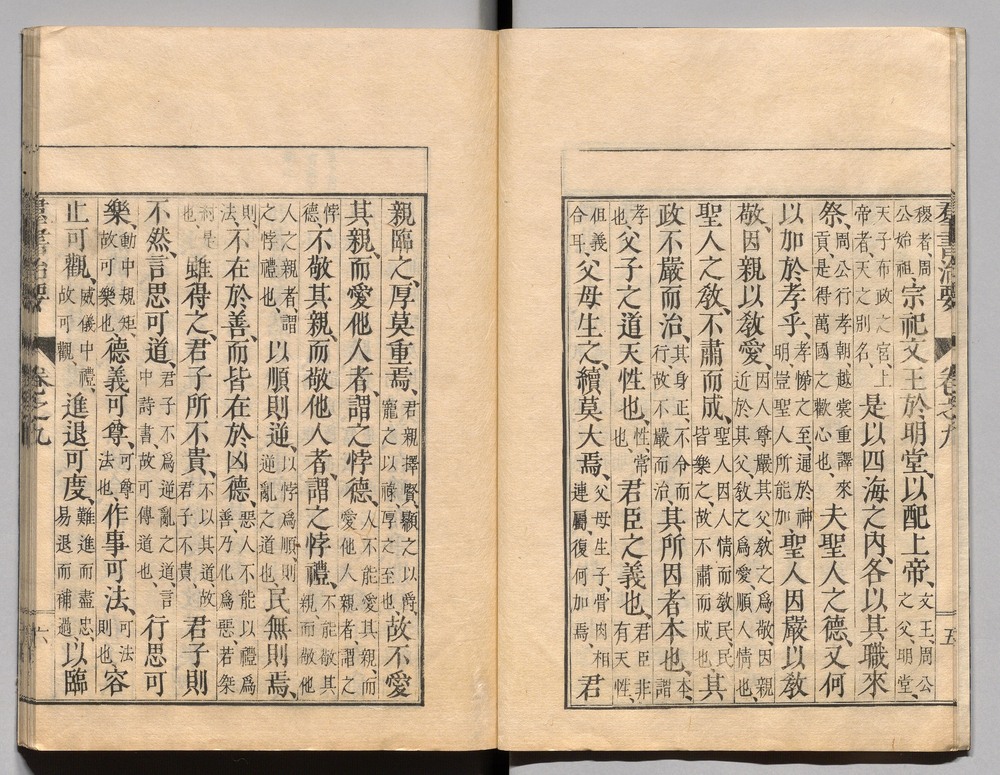 羣書治要 卷之九 五
稷者、周公始祖、宗祀文王於明堂、以配上帝、文王、周公之父、明堂、
天子布政之宮、上帝者、天之別名、是以四海之內、各以其職來
祭、周公行孝朝、越裳重譯來貢、是得萬國之歡心也、夫聖人之德、又何
以加於孝乎、孝悌之至、通於神明、豈聖人所能加、聖人因嚴以敎
敬、因親以敎愛、因人尊嚴其父、敎之爲敬、因親近於其父、敎之爲愛、順人情也、
聖人之敎、不肅而成、聖人因人情而敎民、民皆樂之、故不肅而成也、其
政不嚴而治、其身正、不令而行、故不嚴而治、其所因者本也、本、謂
孝也、父子之道天性也、性、常也、君臣之義也、君臣非有天性、
但義合耳、父母生之、續莫大焉、父母生子、骨肉相連屬、復何加焉、君
親臨之、厚莫重焉、君親擇賢、顯之以爵、寵之以祿、厚之至也、故不愛
其親、而愛他人者、謂之悖德、人不能愛其親、而愛他人親者、謂之
悖德、不敬其親、而敬他人者、謂之悖禮、不能敬其親、而敬他
人之親者、謂之悖禮也、以順則逆、以悖爲順、則逆亂之道也、民無則焉、
則、法、不在於善、而皆在於凶德、惡人不能以禮爲善、乃化爲惡、若桀
紂是也、雖得之、君子所不貴、不以其道、故君子不貴、君子則
不然、言思可道、君子不爲逆亂之道、言中詩書、故可傳道也、行思可
樂、動中規矩、故可樂也、德義可尊、可尊法也、作事可法、可法則也、容
止可觀、威儀中禮、故可觀、進退可度、難進而盡忠、易退而補過、以臨
羣書治要 卷之九 六